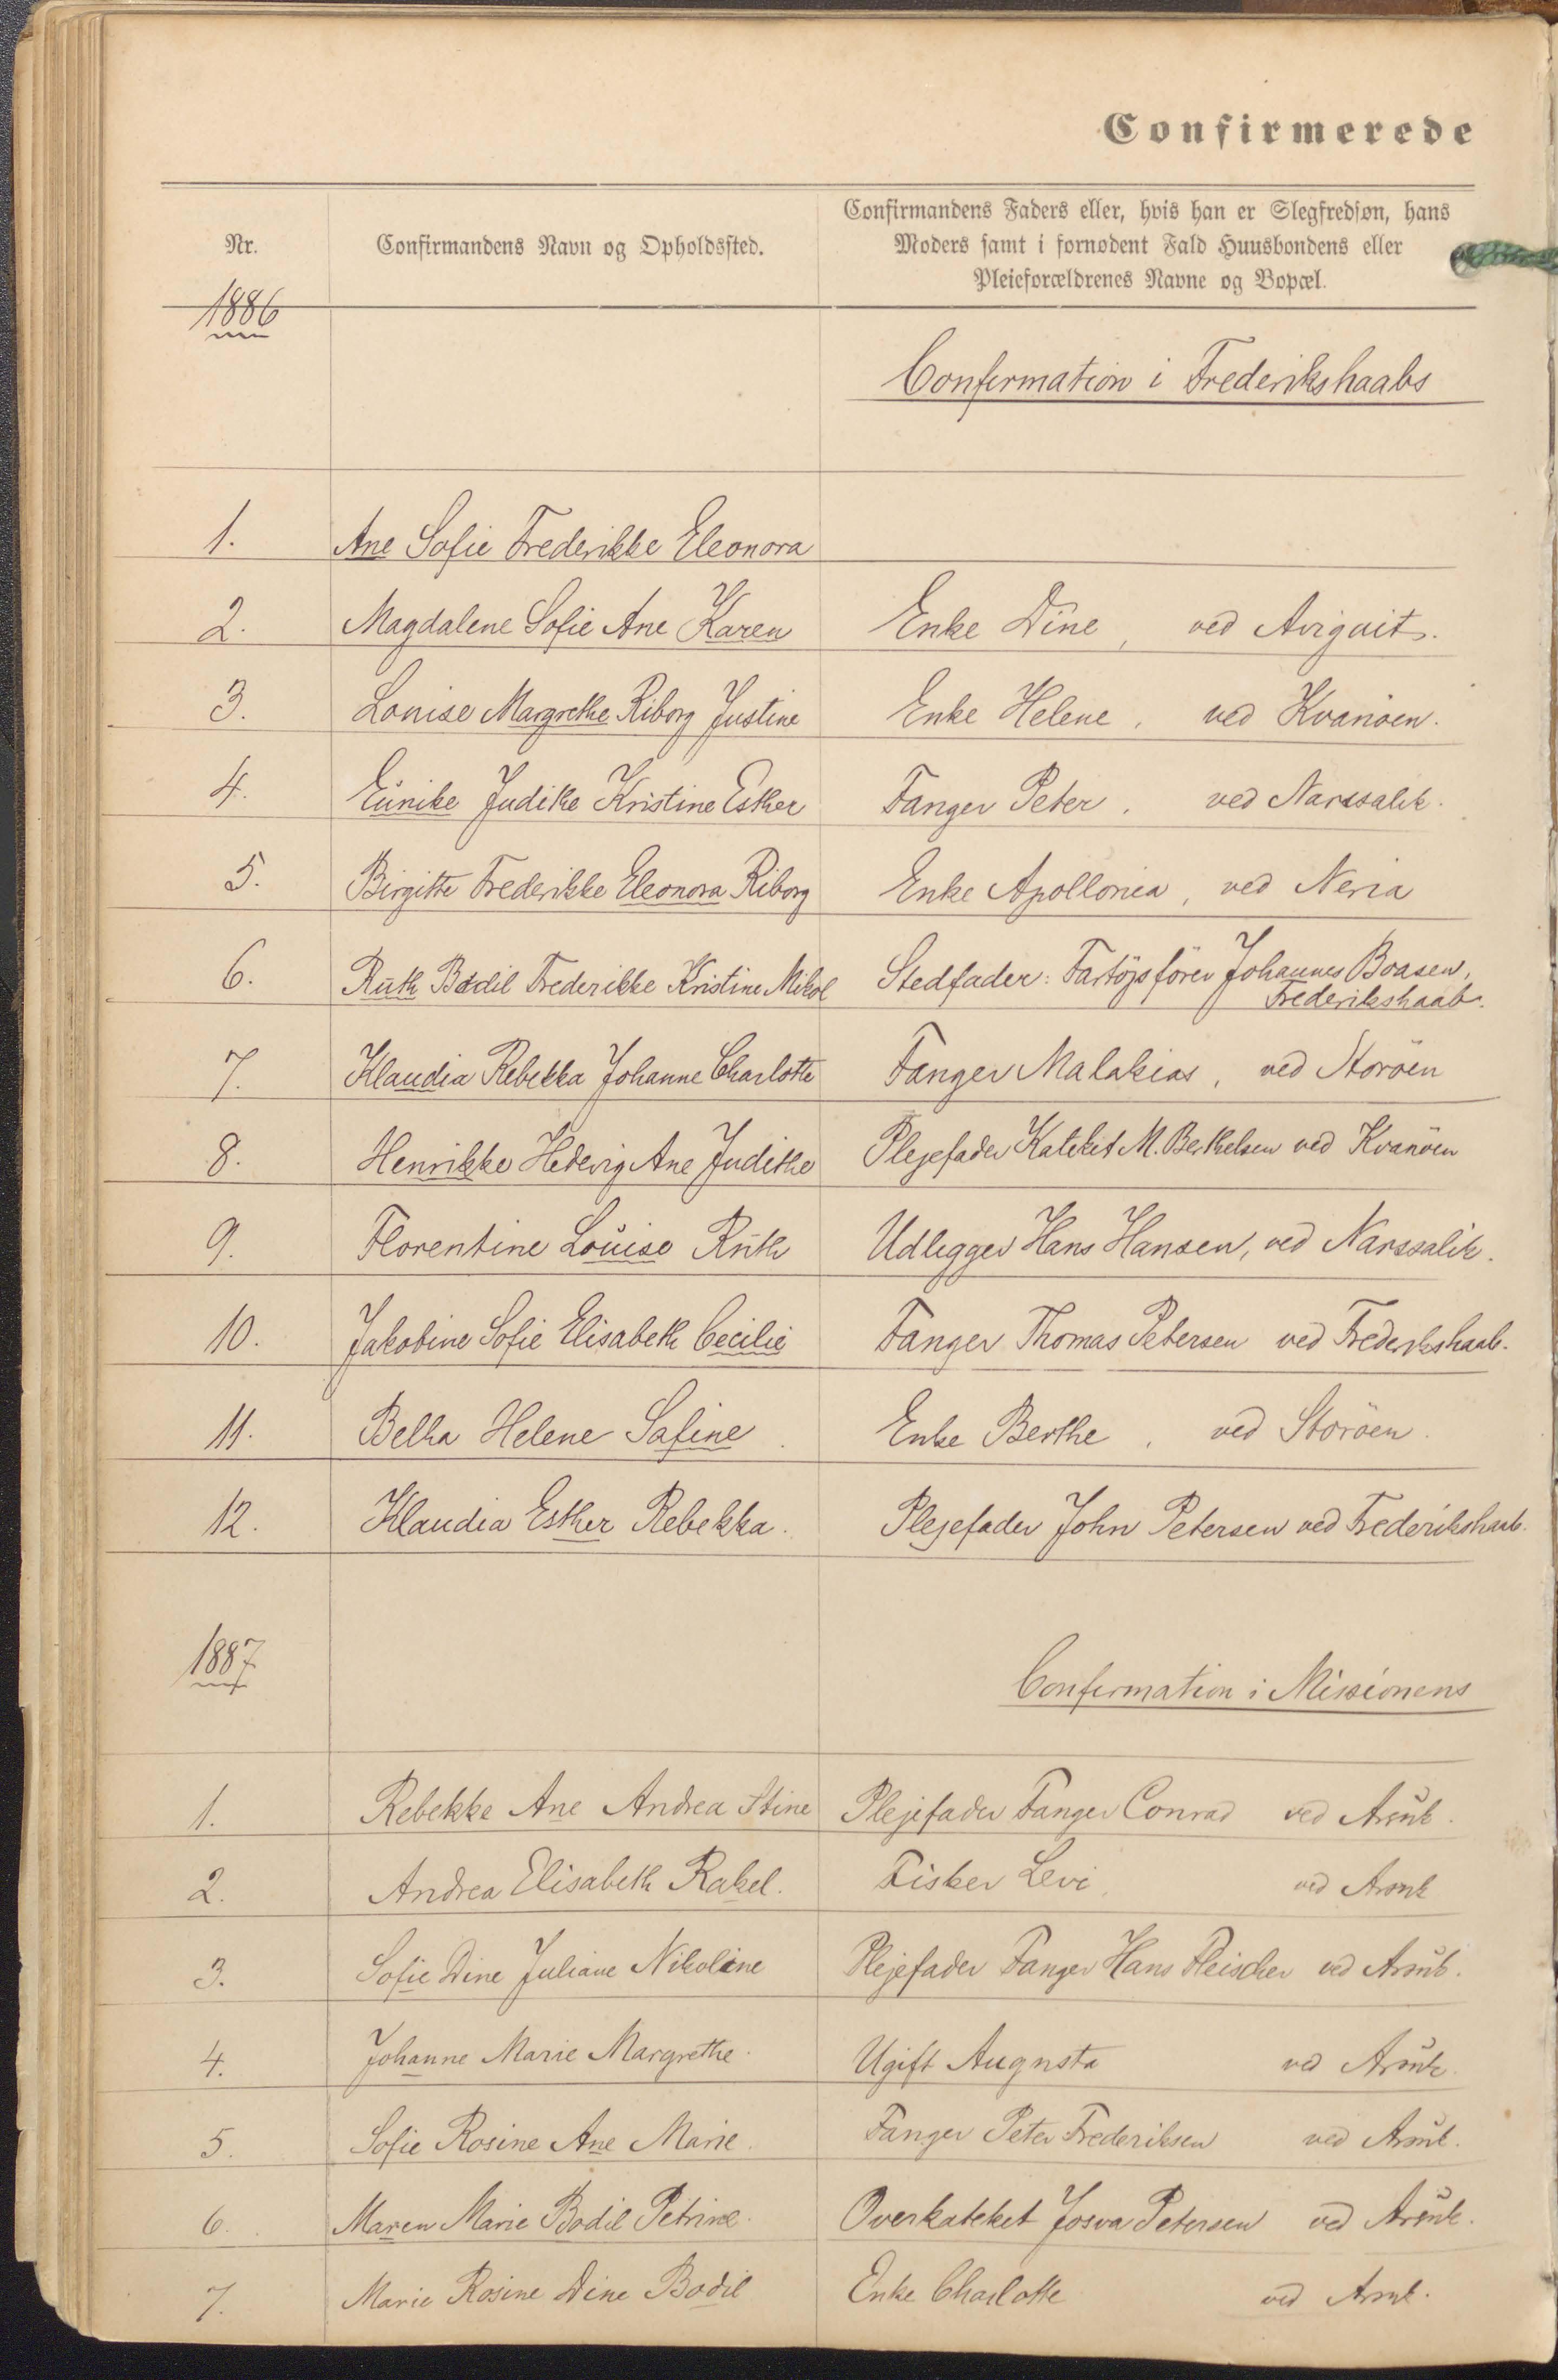 Confirmerede
Nr.
Confirmandens Navn og Opholdssted.
Confirmandens Faders eller, hvis han er Slegfredsøn, hans
Moders samt i fornødent Fald Huusbondens eller
Pleieforældrenes Navne og Bopæl.
1886
Confirmation i Frederikshaabs
1. Ane Sofie Frederikke Eleonora
2. Magdalene Sofie Ane Karen Enke Dine, ved Avigait.
3. Louise Margrethe Riborg Justine Enke Helene, ved Kvanöen.
4. Eunike Judithe Kristine Esther Fanger Peter, ved Narssalik.
5. Birgitte Frederikke Eleonora Riborg Enke Apollonia, ved Neria
6. Ruth Bodil Frederikke Kristine Mikol Stedfader: Fartöjsförer Johannes Boasen,
Frederikshaab.
7. Klaudia Rebekka Johanne Charlotte Fanger Malakias, ved Storöen
8. Henrikke Hedevig Ane Judithe Plejefader Kateket M. Berthelsen ved Kvanöen
9. Florentine Louise Ruth Udligger Hans Hansen, ved Narssalik.
10. Jakobine Sofie Elisabeth Cecilie Fanger Thomas Petersen ved Frederikshaab.
11. Betha Helene Safine Enke Berthe, ved Storöen.
12. Klaudia Esther Rebekka. Plejefader John Petersen ved Frederikshaab.
1887
Confirmation i Missionens
1. Rebekke Ane Andrea Stine Plejefader Fanger Conrad ved Arsuk.
2. Andrea Elisabeth Rakel. Fisker Levi, ved Arsuk
3. Sofie Dine Juliane Nikoline Plejefader Fanger Hans Fleischer ved Arsuk.
4. Johanne Marie Margrethe. Ugift Augusta ved Arsuk.
5. Sofie Rosine Ane Marie. Fanger Peter Frederiksen ved Arsuk.
6. Maren Marie Bodil Petrine. Overkateket Josva Petersen ved Arsuk.
7. Marie Rosine Dine Bodil Enke Charlotte ved Arsuk.